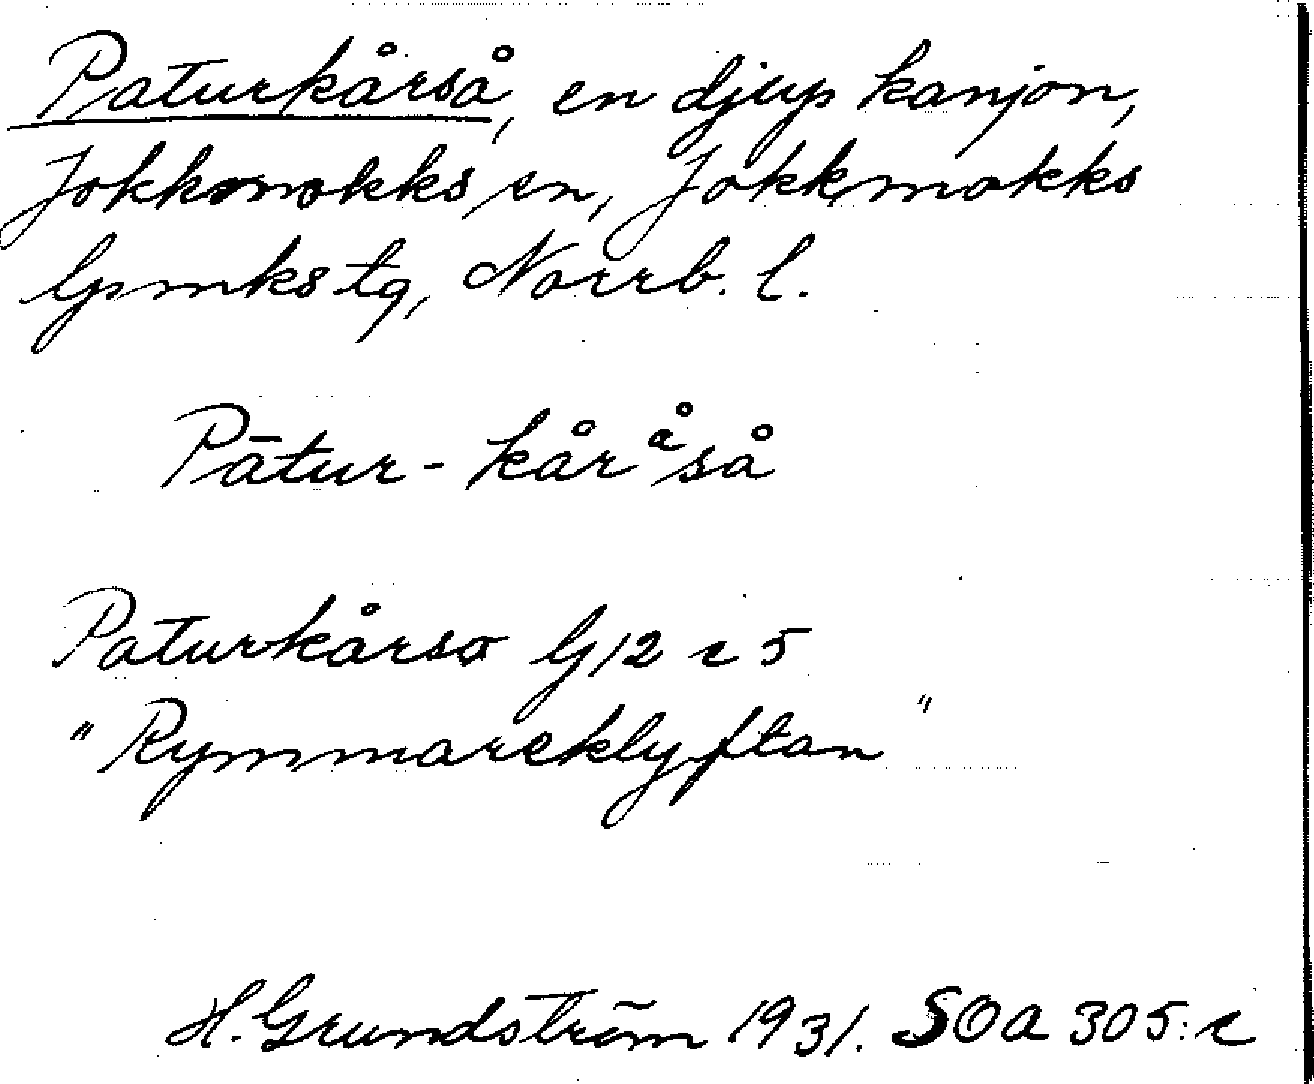 Paturkårså, en djup kanjon,
Jokkmokks sn, Jokkmokks
lpmks tg, Norrb. l.
Pātur-kåråså
Paturkårso G12 c 5
"Rymmareklyftan"
H. Grundström 1931. SOA 305:c